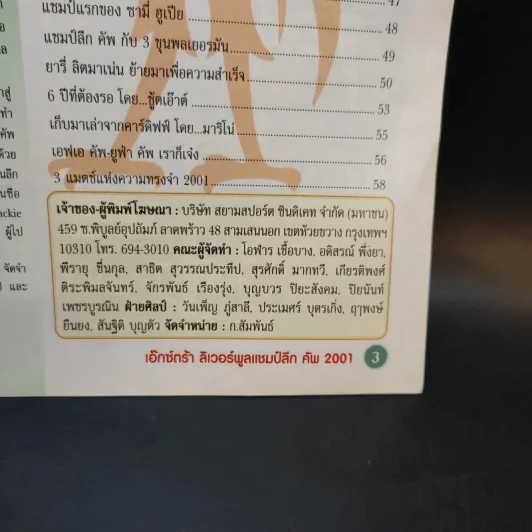 แชมป์แรกของ ซามี่ ฮูเปีย
47
48
แชมป์ลีก คัพ กับ 3 ขุนพลเยอรมัน
49
ยารี่ ลิตมาเน่น ย้ายมาเพื่อความสำเร็จ
50
6 ปีที่ต้องรอ โดย...ชู้ตเอ๊าต์
53
เก็บมาเล่าจากคาร์ดิฟฟ์ โดย...มาริโน่
55
เอฟเอ คัพ-ยูฟ่า คัพ เราก็เจ๋ง
56
3 แมตช์แห่งความทรงจำ 2001
58
เจ้าของ-ผู้พิมพ์โฆษณา : บริษัท สยามสปอร์ต ซินดิเคท จำกัด (มหาชน)
459 ซ.พิบูลย์อุปถัมภ์ ลาดพร้าว 48 สามเสนนอก เขตห้วยขวาง กรุงเทพฯ
10310 โทร. 694-3010 คณะผู้จัดทำ : โอฬาร เชื้อบาง, อดิสรณ์ พึ่งยา,
พีรายุ ชื่นกุล, สาธิต สุวรรณประทีป, สุรศักดิ์ มากทวี, เกียรติพงศ์
ติระพิมลจันทร์, จักรพันธ์ เรืองรุ่ง, บุญบวร ปิยะสังคม, ปิยนันท์
เพชรบูรณิน ฝ่ายศิลป์ : วันเพ็ญ ภู่สาลี, ประเมศร์ บุตรเกิ่ง, ฤาพงษ์
ยืนยง, สันฐิติ บุญตัว จัดจำหน่าย : ก.สัมพันธ์
เอ็กซ์ตร้า ลิเวอร์พูลแชมป์ลีก คัพ 2001 3